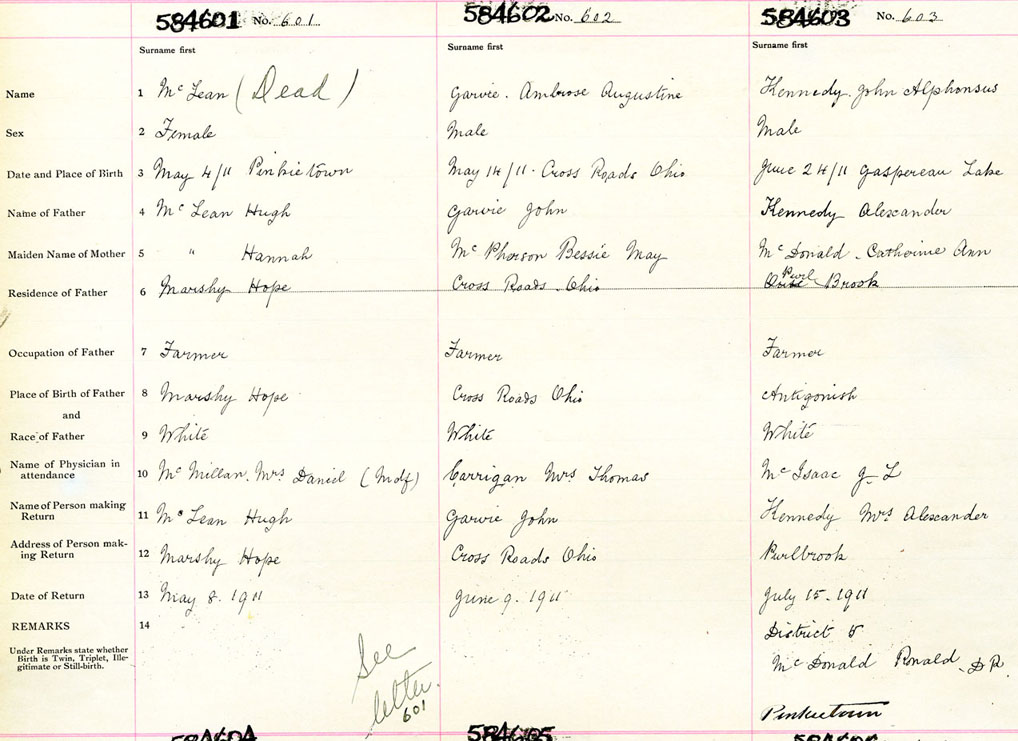 584601 No. 601 584602 No. 602 584603 No. 603
Surname first Surname first Surname first
Name 1 Mc Lean (Dead) Garvie. Ambrose Augustine Kennedy. John Alphonsus
Sex 2 Female Male Male
Date and Place of Birth 3 May 4/11 Pinkietown May 14/11 - Cross Roads Ohio June 24/11 Gaspereau Lake
Name of Father 4 Mc Lean Hugh Garvie John Kennedy Alexander
Maiden Name of Mother 5 " Hannah Mc Pherson Bessie May Mc Donald. Catherine Ann
Purl
Residence of Father 6 Marshy Hope Cross Roads Ohio Brook
Occupation of Father 7 Farmer Farmer Farmer
Place of Birth of Father 8 Marshy Hope Cross Roads Ohio Antigonish
and
Race of Father 9 White White White
Name of Physician in
attendance 10 Mc Millan. Mrs Daniel (Mdf) Carrigan Mrs Thomas Mc Isaac J L
Name of Person making
Return 11 Mc Lean Hugh Garvie John Kennedy Mrs Alexander
Address of Person mak-
ing Return 12 Marshy Hope Cross Roads Ohio Purlbrook
Date of Return 13 May 8. 1911 June 9. 1911 July 15. 1911
REMARKS 14 District 5
Under Remarks state whether
Birth is Twin, Triplet, Ille-
gitimate or Still-birth.
Mc Donald Ronald D.R.
See
letter.
601
Pinkietown
584604 584605